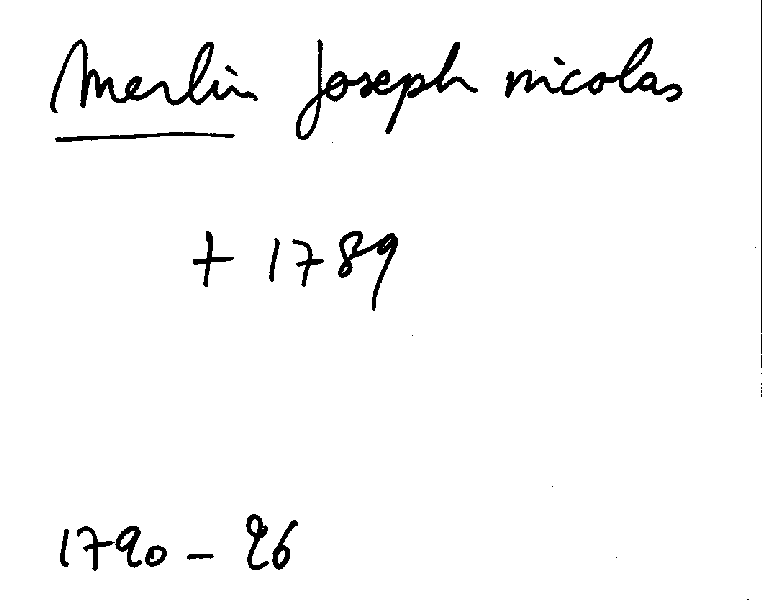 Merlin Joseph nicolas
+ 1789
1790 - 26